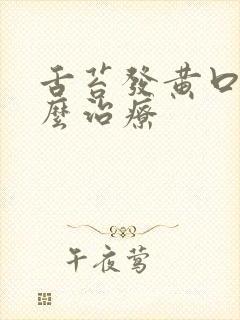 舌苔發黃口
麼治療
午夜鶯